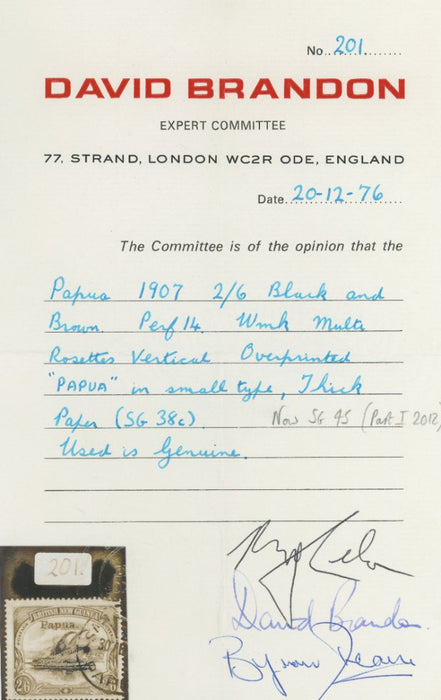 No. 201
DAVID BRANDON
EXPERT COMMITTEE
77, STRAND, LONDON WC2R ODE, ENGLAND
Date 20-12-76
The Committee is of the opinion that the
Papua 1907 2/6 Black and
Brown Perf 14 Wmk Multi
Rosettes Vertical Overprinted
"PAPUA" in small type, Thick
Paper (SG 38c) Now SG 45 (Part I 2012)
Used is Genuine.
David Brandon
201
BRITISH NEW GUINEA
Papua.
2/6